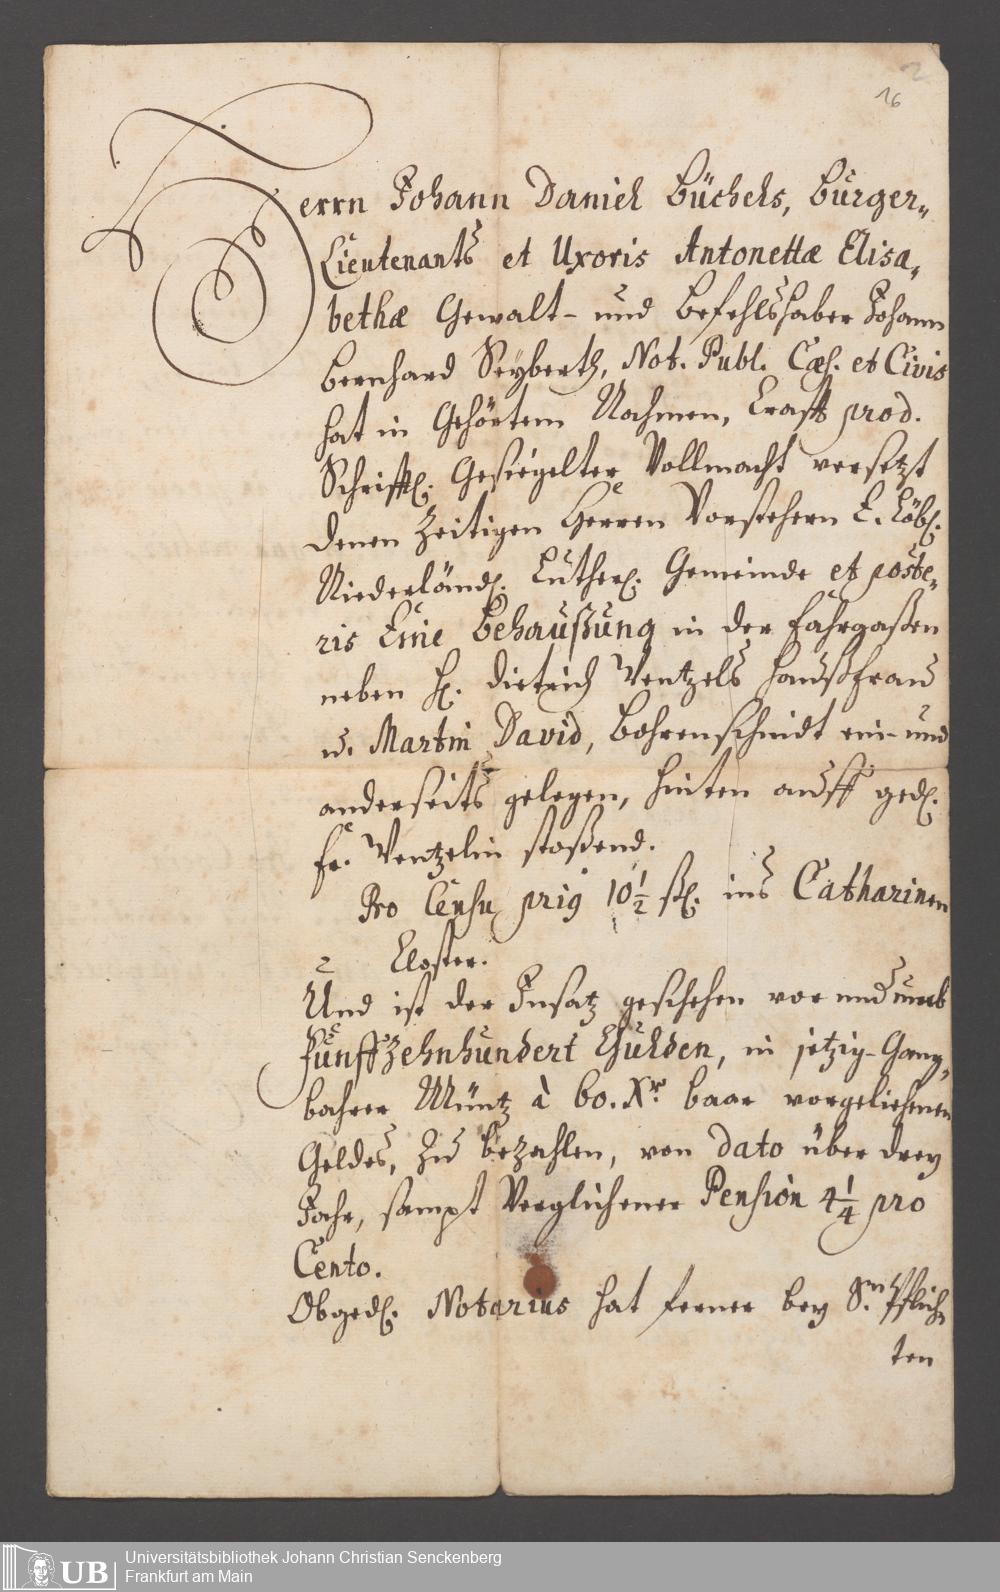 2
16
Herrn Johann Daniel Büchels, Burger-
Lieutenants et Uxoris Antonettæ Elisa-
bethæ Gewalt- und Befehlshaber Johann
Bernhard Seyberth, Not. Publ. Cæs. et Civis
hat in Gehörtem Nahmen, Krafft prod.
Schrifftl. Gesiegelter Vollmacht versetzt
denen Zeitigen Herren Vorstehern E. Löbl.
Niederländ. Luther. Gemeinde et poste-
ris Eine Behaußung in der Fahrgaßen
neben H. Dietrich Wentzels Haußfrau
u. Martin David, Bohrenschmidt ein- und
anderseits gelegen, hinten auff ged.
Fr. Wentzelin stoßend.
Pro Censu prig 10 1/2 ßl. ins Catharinen
Closter.
Und ist der Insatz geschehen vor und umb
Funffzehnhundert Gulden, in jetzig-Gang-
bahrer Müntz à 60. Xr. baar vorgeliehenen
Geldes, zu bezahlen, von dato über drey
Jahr, sampt Verglichener Pension 4 1/4 pro
Cento.
Obged. Notarius hat ferner bey Sn. Pflich-
ten
UB
Universitätsbibliothek Johann Christian Senckenberg
Frankfurt am Main